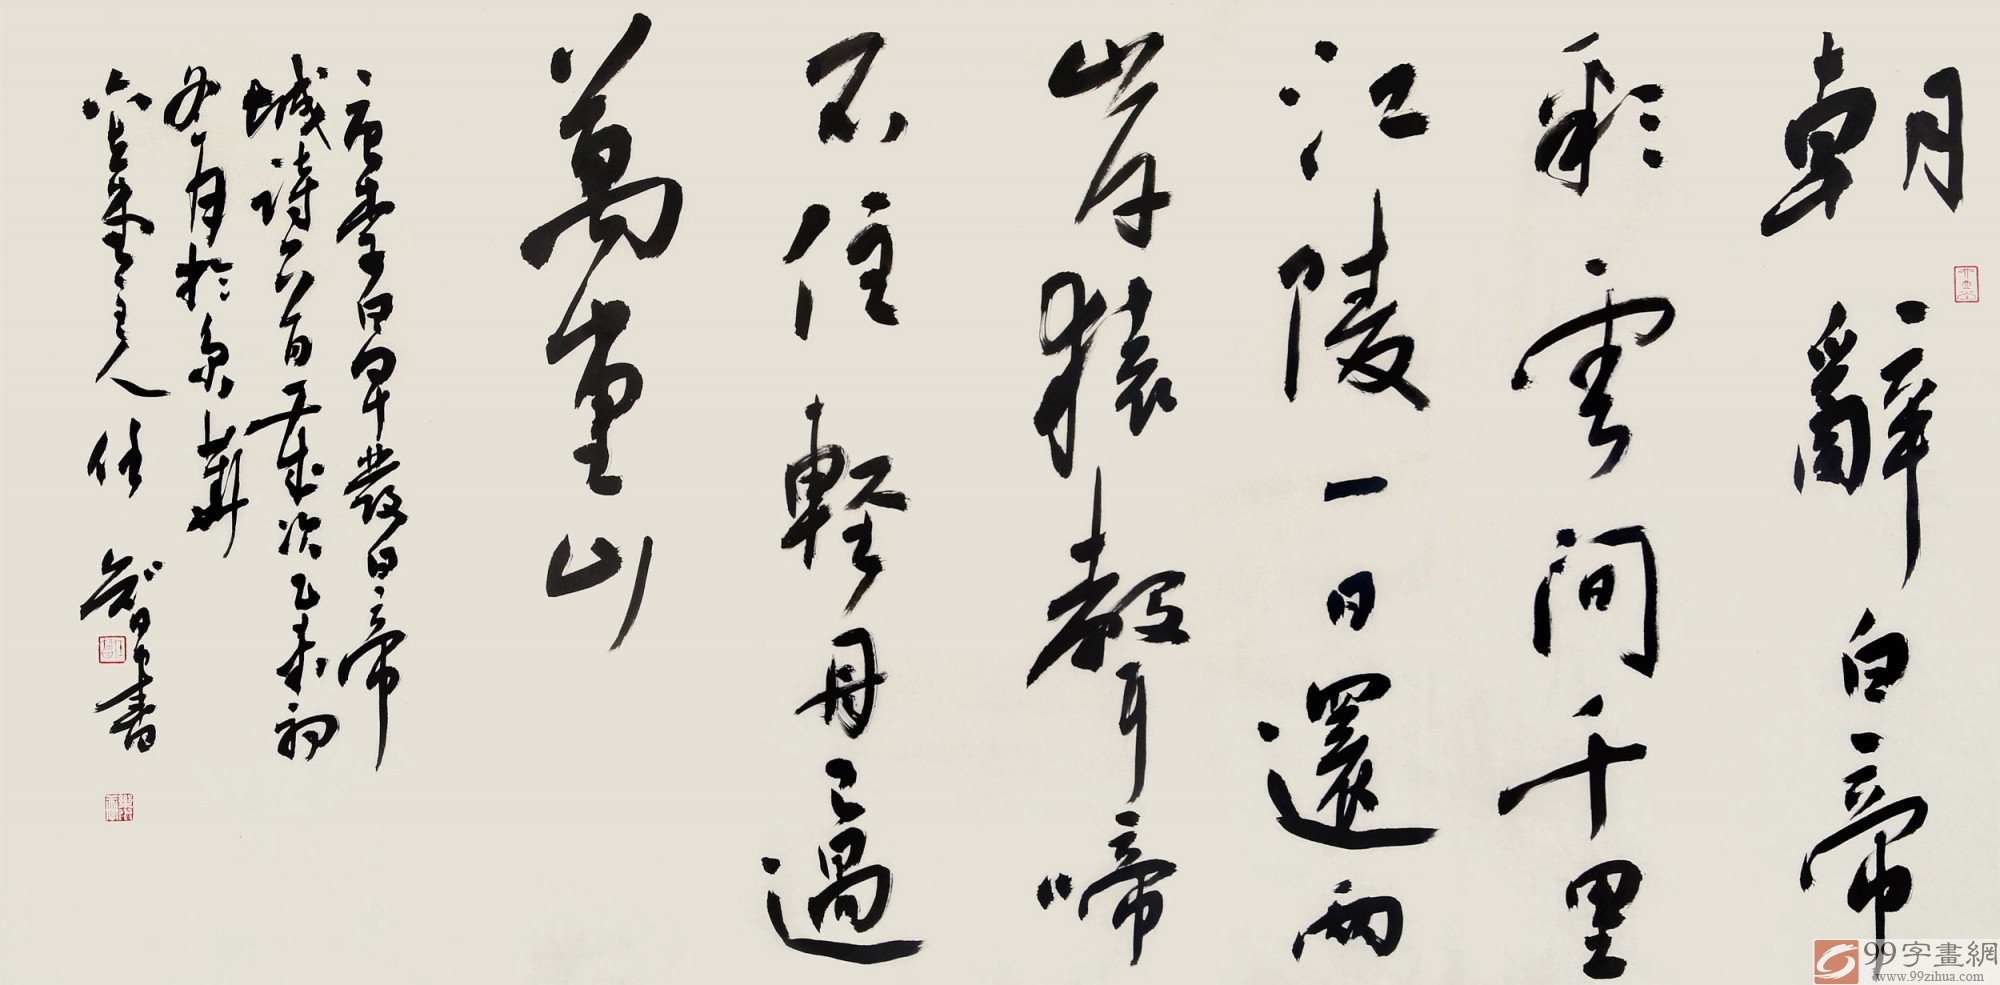 朝辭白帝
彩雲間千里
江陵一日還兩
岸猿聲啼
不住輕舟已過
萬重山
唐李白早發白帝
城詩一首歲次乙未初
冬月於京華
主人任書
99字畫網
www.99zihua.com